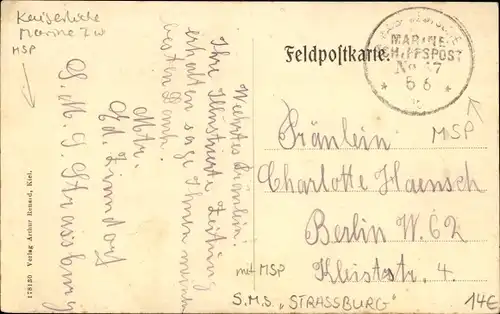 Kaiserliche
Marine I.W
MSP
Feldpostkarte.
MARINE
SCHIFFSPOST
No 47
* 5 6 *
MSP
Wehrtes Fräulein!
Ihre Illustrierte Zeitung
erhalten sage Ihnen meinen
besten Dank.
Mtr.
S.M.S. Strassburg
Fräulein
Charlotte Haensch
Berlin W. 62
Kleiststr. 4.
mit MSP
S.M.S. „STRASSBURG“
14€
178130 Verlag Arthur Renard, Kiel.